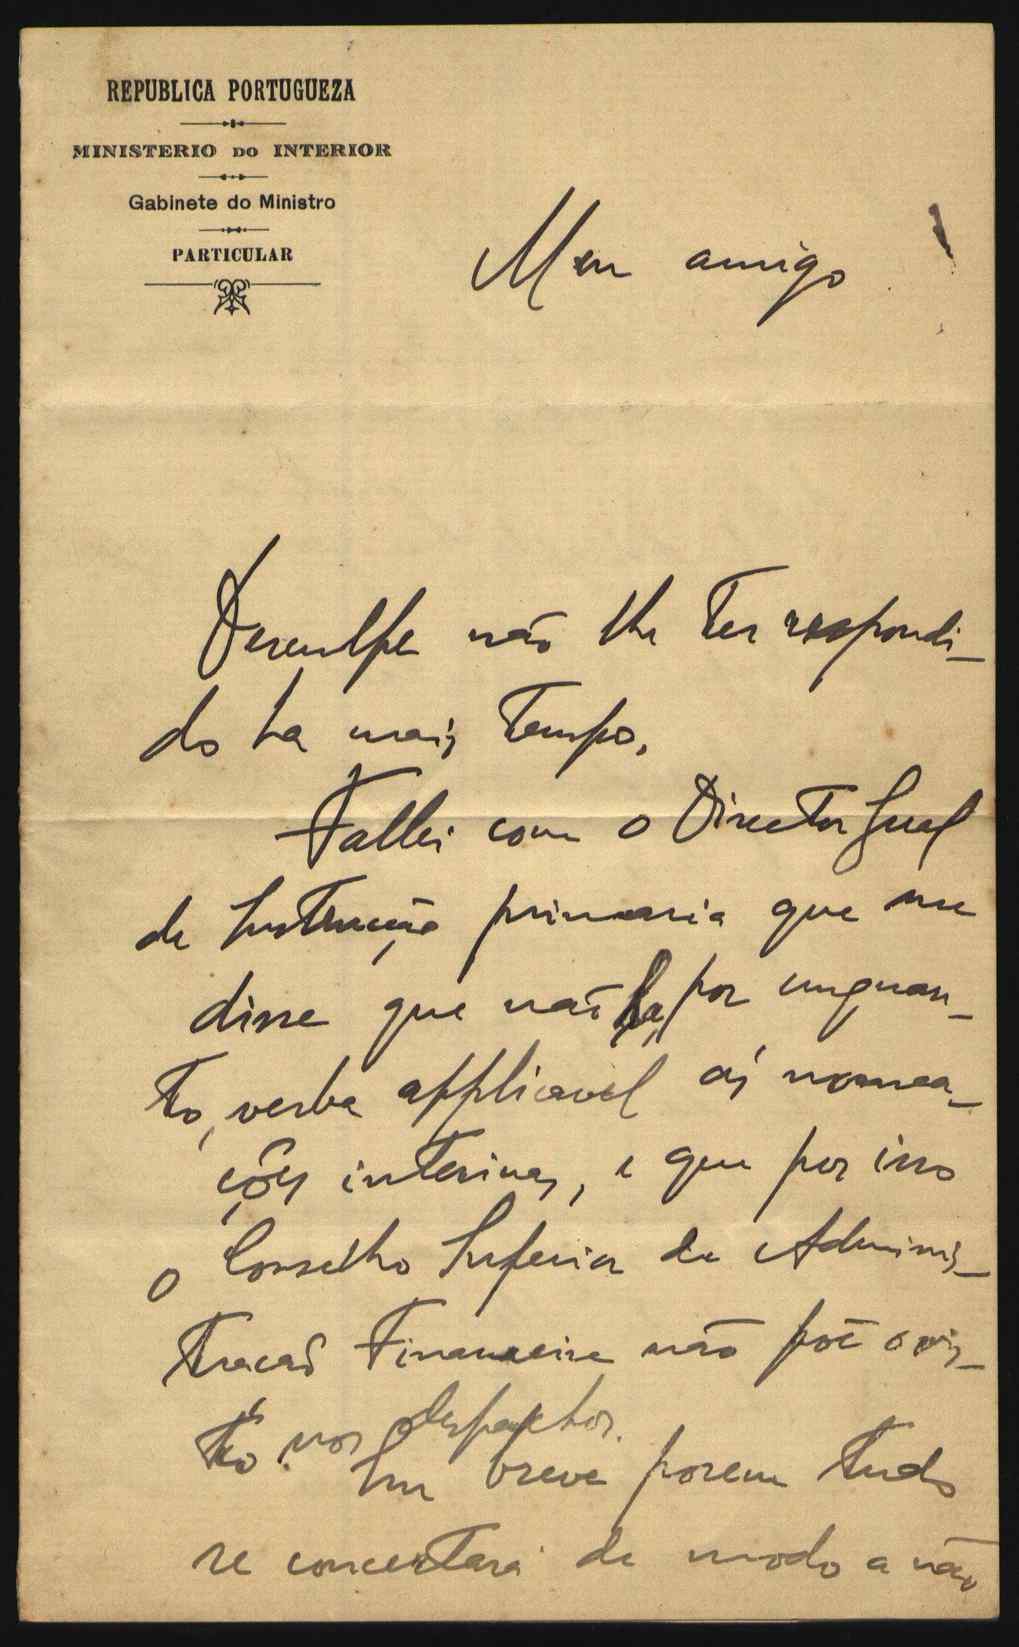 REPUBLICA PORTUGUEZA
MINISTERIO DO INTERIOR
Gabinete do Ministro
PARTICULAR
Meu amigo
Desculpe não lhe ter respondi-
do ha mais tempo.
Fallei com o Director Geral
de Instrucção primaria que me
disse que não ha, por emquan-
to, verba applicavel ás nomea-
ções interinas, e que por isso
o Conselho Superior de Adminis-
tracão Financeira não põe o vis-
to nos despachos.
Em breve porem tudo
se concertará de modo a não